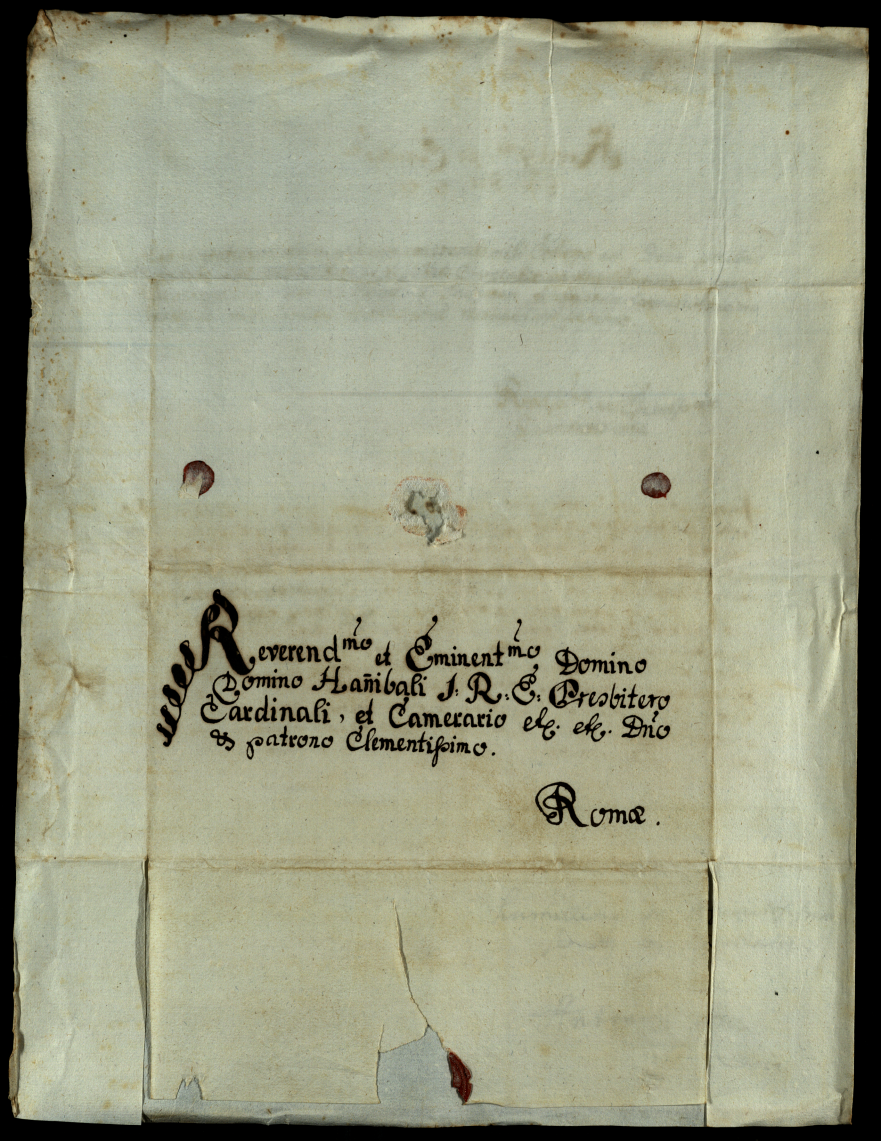 Reverend^mo et Eminent^mo Domino
Domino Hañibali S: R: E: Presbitero
Cardinali, et Camerario etc. etc. Dño
& patrono Clementißimo.
Romæ.